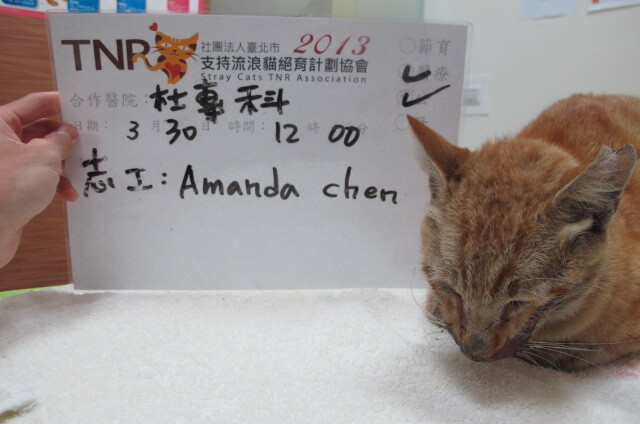 TNR 社團法人臺北市 2013
支持流浪貓絕育計劃協會
Stray Cats TNR Association
節育
醫療
合作醫院：杜專科
日期： 3 月 30 日 時間： 12 時 00 分
志工：Amanda chen